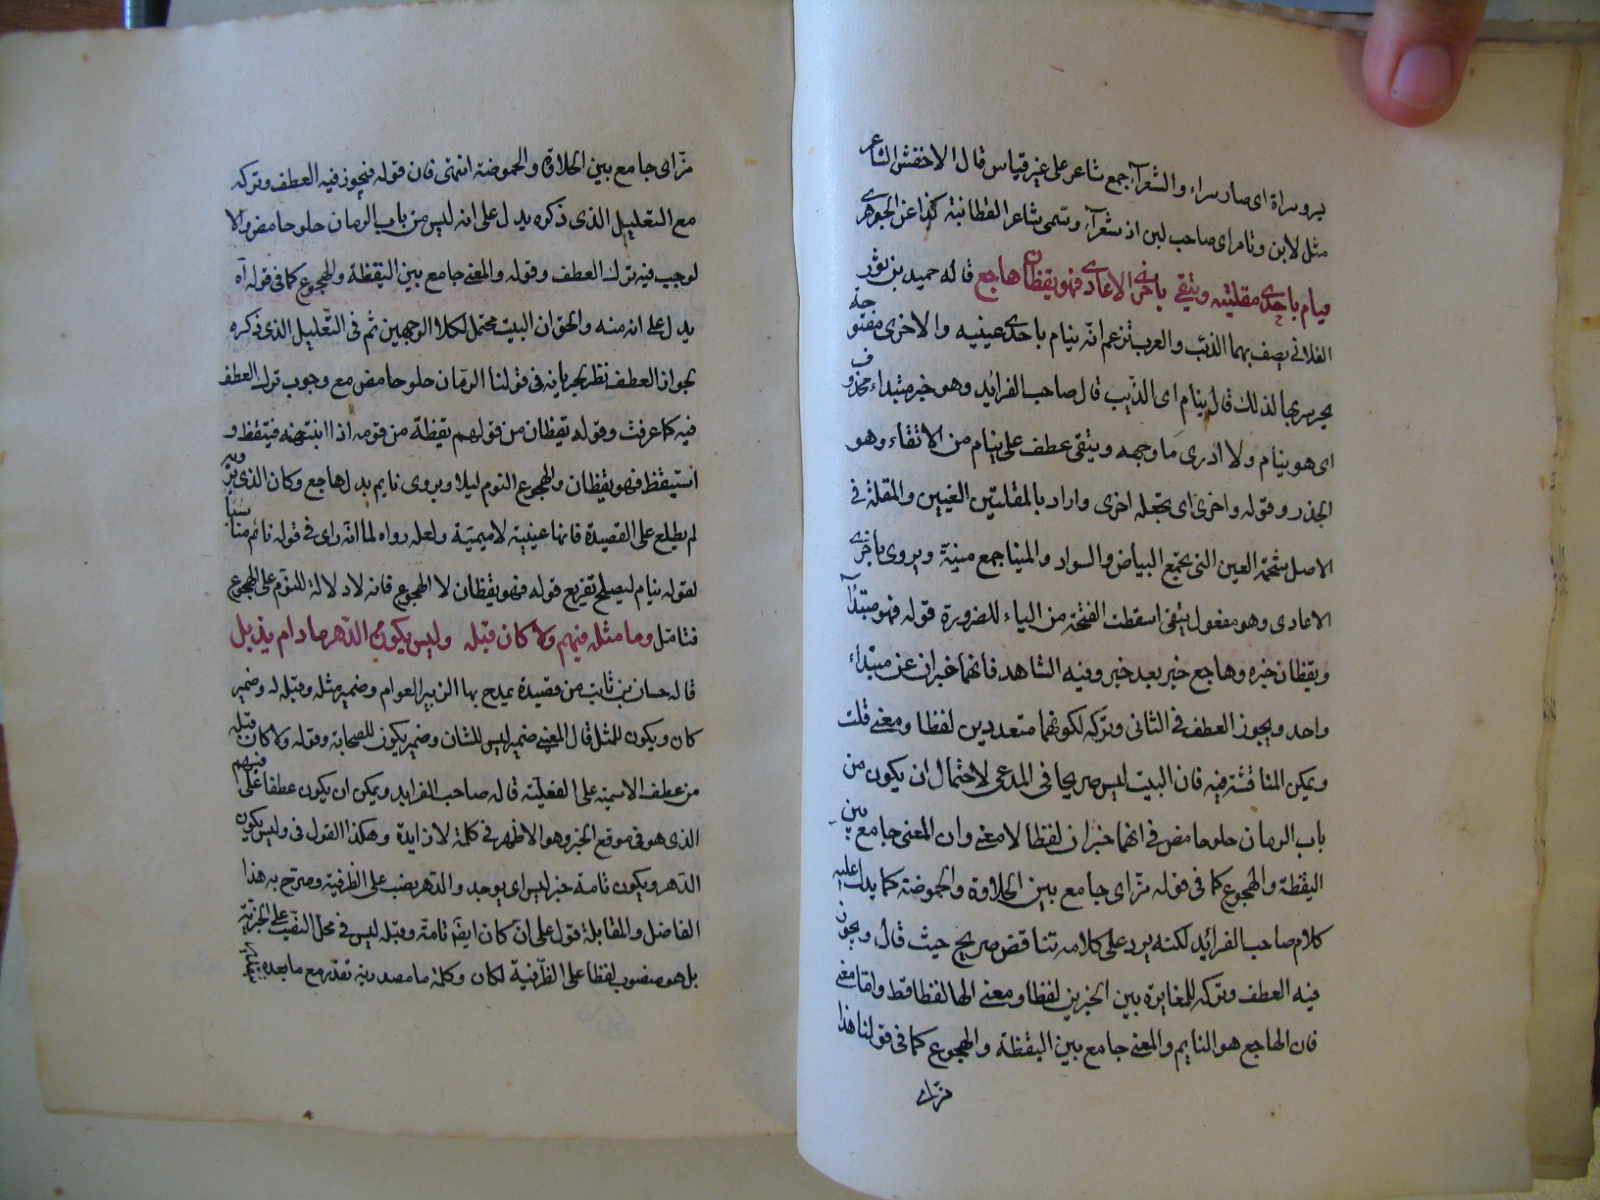 يرو سراة اى صار سراء والشعرآء جمع شاعر على غير قياس قال الاخفش الشاعر
مثل لابن وتامر اى صاحب لبن اذ شعرآء وسمى شاعر الفطانية كذا عن الجوهرى
ينام باحدى مقلتيه ويتقى باخرى الاعادى فهو يقظان هاجع قاله حميد بن ثور
الهلالى يصف بهما الذئب والعرب تزعم انه ينام باحدى عينيه والاخرى مفتوحة
يحرس بها لذلك قال ينام اى الذيب قال صاحب الفرائد وهو خبر مبتداء محذوف
اى هو ينام ولا ادرى ما وجهه ويتقى عطف على ينام من الاتقاء وهو
الحذر وقوله واخرى اى بمقلة اخرى واراد بالمقلتين العينين والمقلة فى
الاصل شحمة العين التى تجمع البياض والسواد والمنايا جمع منية ويروى باخرى
الاعادى وهو مفعول يتقى اسقطت الفتحة من الياء للضرورة قوله فهو مبتدأ
ويقظان خبره وهاجع خبر بعد خبر وفيه الشاهد فانهما خبران عن مبتداء
واحد ويجوز العطف فى الثانى وتركه لكونهما متعددين لفظا ومعنى قلت
ويمكن المناقشة فيه فان البيت ليس صريحا فى المدعى لاحتمال ان يكون من
باب الرمان حلو حامض فى انهما خبران لفظا لا معنى وان المعنى جامع بين
اليقظة والهجوع كما فى قوله مزاى جامع بين الحلاوة والحموضة كما يدل عليه
كلام صاحب الفرائد لكنه يرد على كلامه تناقض صريح حيث قال ويجوز
فيه العطف وتركه للمغايرة بين الخبرين لفظا ومعنى لفظا فقط واما معنى
فان الهاجع هو النايم والمعنى جامع بين اليقظة والهجوع كما فى قولنا هذا
مزاى
مزاى جامع بين الحلاوة والحموضة انتهى فان قوله فيجوز فيه العطف وتركه
مع التعليل الذى ذكره يدل على انه ليس من باب الرمان حلو حامض والا
لوجب فيه ترك العطف وقوله والمعنى جامع بين اليقظة والهجوع كما فى قوله آه
يدل على انه منه والحق ان البيت محتمل لكلا الوجهين ثم فى التعليل الذى ذكره
بجواز العطف نظر لجريانه فى قولنا الرمان حلو حامض مع وجوب ترك العطف
فيه كما عرفت وقوله يقظان من قولهم يقظة من قومه اذا انتبه فيتقظ و
استيقظ فهو يقظان والهجوع النوم ليلا ويروى نايم بدل هاجع وكان الذى يرويه
لم يطلع على القصيدة فانها عينية لا ميمية ولعله رواه لما انه راى فى قوله نائم مناسبا
لقوله ينام ليصلح تفريع قوله فهو يقظان لا الهجوع فانه لا دلالة للنوم على الهجوع
فتامل وما مثله فيهم ولا كان قبله وليس يكون الدهر ما دام يذبل
قاله حسان بن ثابت من قصيدة يمدح بها الزبير العوام وضمير مثله وقبله له وضمير
كان ويكون للمثل قال المعنى ضمير ليس للشان وضمير يكون للصحابة وقوله ولا كان قبله
من عطف الاسمية على الفعلية قاله صاحب الفرايد ويمكن ان يكون عطفا على فيهم
الذى هو فى موقع الخبر وهو الاظهر فى كلمة لا زايدة وهكذا القول فى وليس يكون
الدهر ويكون تامة خبر ليس اى يوجد والدهر نصب على الظرفية وصرح به هذا
الفاضل والمقابلة قول على ان كان ايضا تامة وقبله ليس فى محل النصب على الخبرية
بل هو منصوب لفظا على الظرفية لكان وكلمة ما مصدرية تقدر مع ما بعده